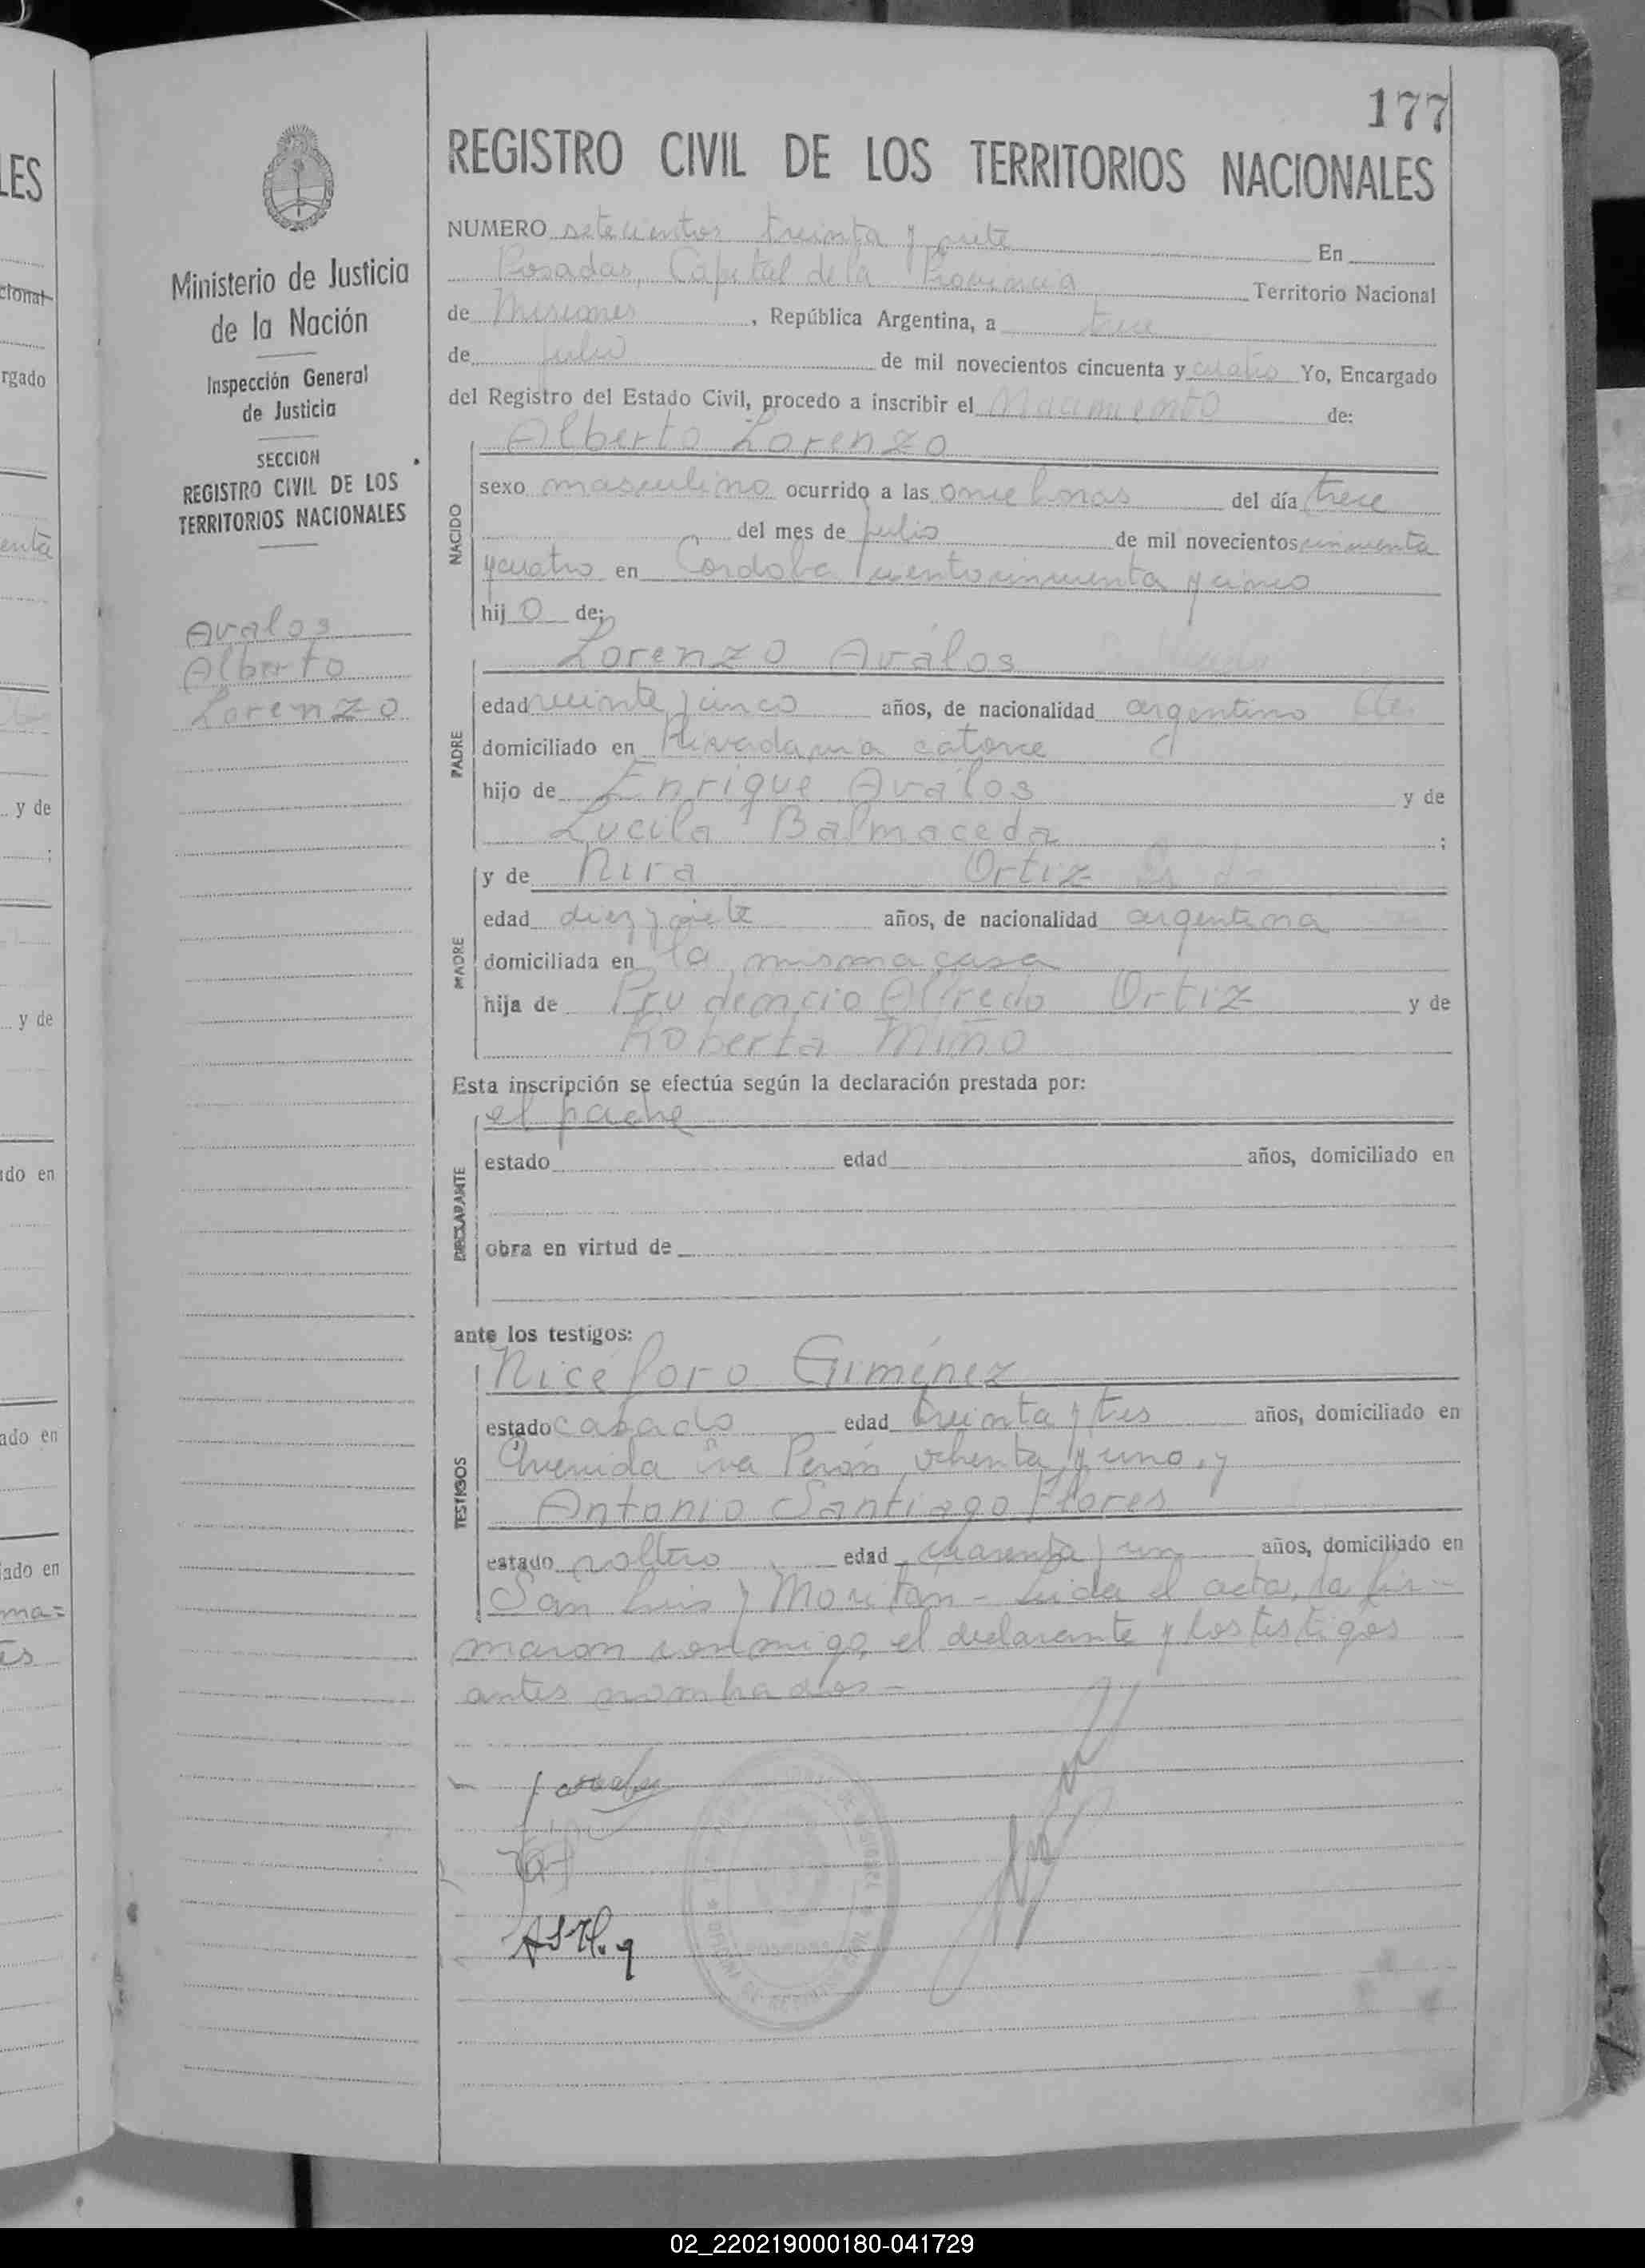 177
REGISTRO CIVIL DE LOS TERRITORIOS NACIONALES
NUMERO setecientos treinta y siete En
Posadas, Capital de la Provincia Territorio Nacional
de Misiones, República Argentina, a trece
de julio de mil novecientos cincuenta y cuatro Yo, Encargado
del Registro del Estado Civil, procedo a inscribir el Nacimiento de:
Alberto Lorenzo
NACIDO
sexo masculino ocurrido a las once horas del día trece
del mes de julio de mil novecientos cincuenta
y cuatro en Cordoba ciento cincuenta y cinco
hijo de:
Lorenzo Avalos
PADRE
edad veinte y cinco años, de nacionalidad argentino
domiciliado en Rivadavia catorce
hijo de Enrique Avalos y de
Lucila Balmaceda ;
y de Nira Ortiz
MADRE
edad diez y siete años, de nacionalidad argentina
domiciliada en la misma casa
hija de Prudencio Alfredo Ortiz y de
Roberta Miño
Esta inscripción se efectúa según la declaración prestada por:
el padre
DECLARANTE
estado edad años, domiciliado en
obra en virtud de
ante los testigos:
Nicéforo Giménez
TESTIGOS
estado casado edad treinta y tres años, domiciliado en
Avenida Eva Perón, ochenta y uno, y
Antonio Santiago Flores
estado soltero edad cuarenta y un años, domiciliado en
San Luis y Moritán - Leida el acta, la fir-
maron conmigo, el declarante y los testigos
antes nombrados -
Ministerio de Justicia
de la Nación
Inspección General
de Justicia
SECCION
REGISTRO CIVIL DE LOS
TERRITORIOS NACIONALES
Avalos
Alberto
Lorenzo
LES
cional
rgado
enta
y de
y de
ido en
ado en
iado en
ma=
es
02_220219000180-041729